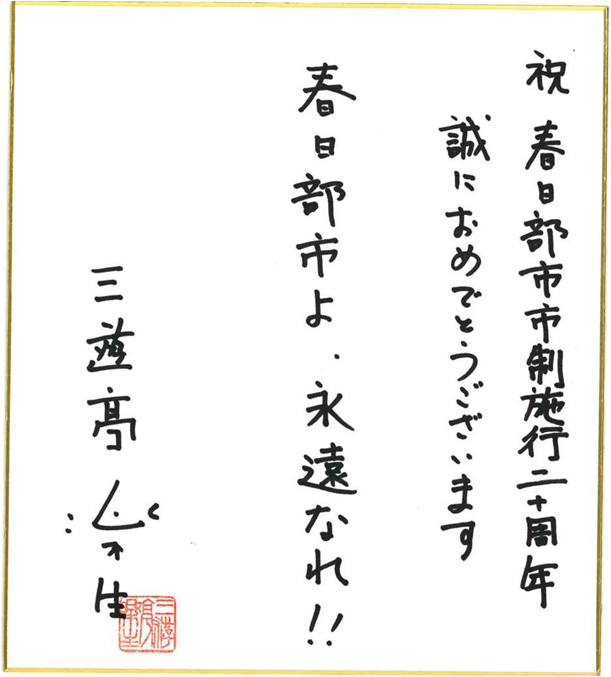 祝 春日部市市制施行二十周年
誠におめでとうございます
春日部市よ、永遠なれ!!
三遊亭楽生